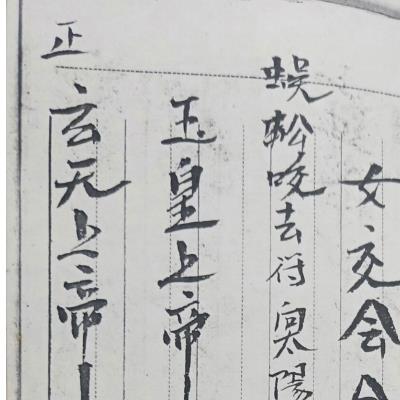 女交会
蜈蚣咬去符 陽
玉皇上帝
正
玄天上帝